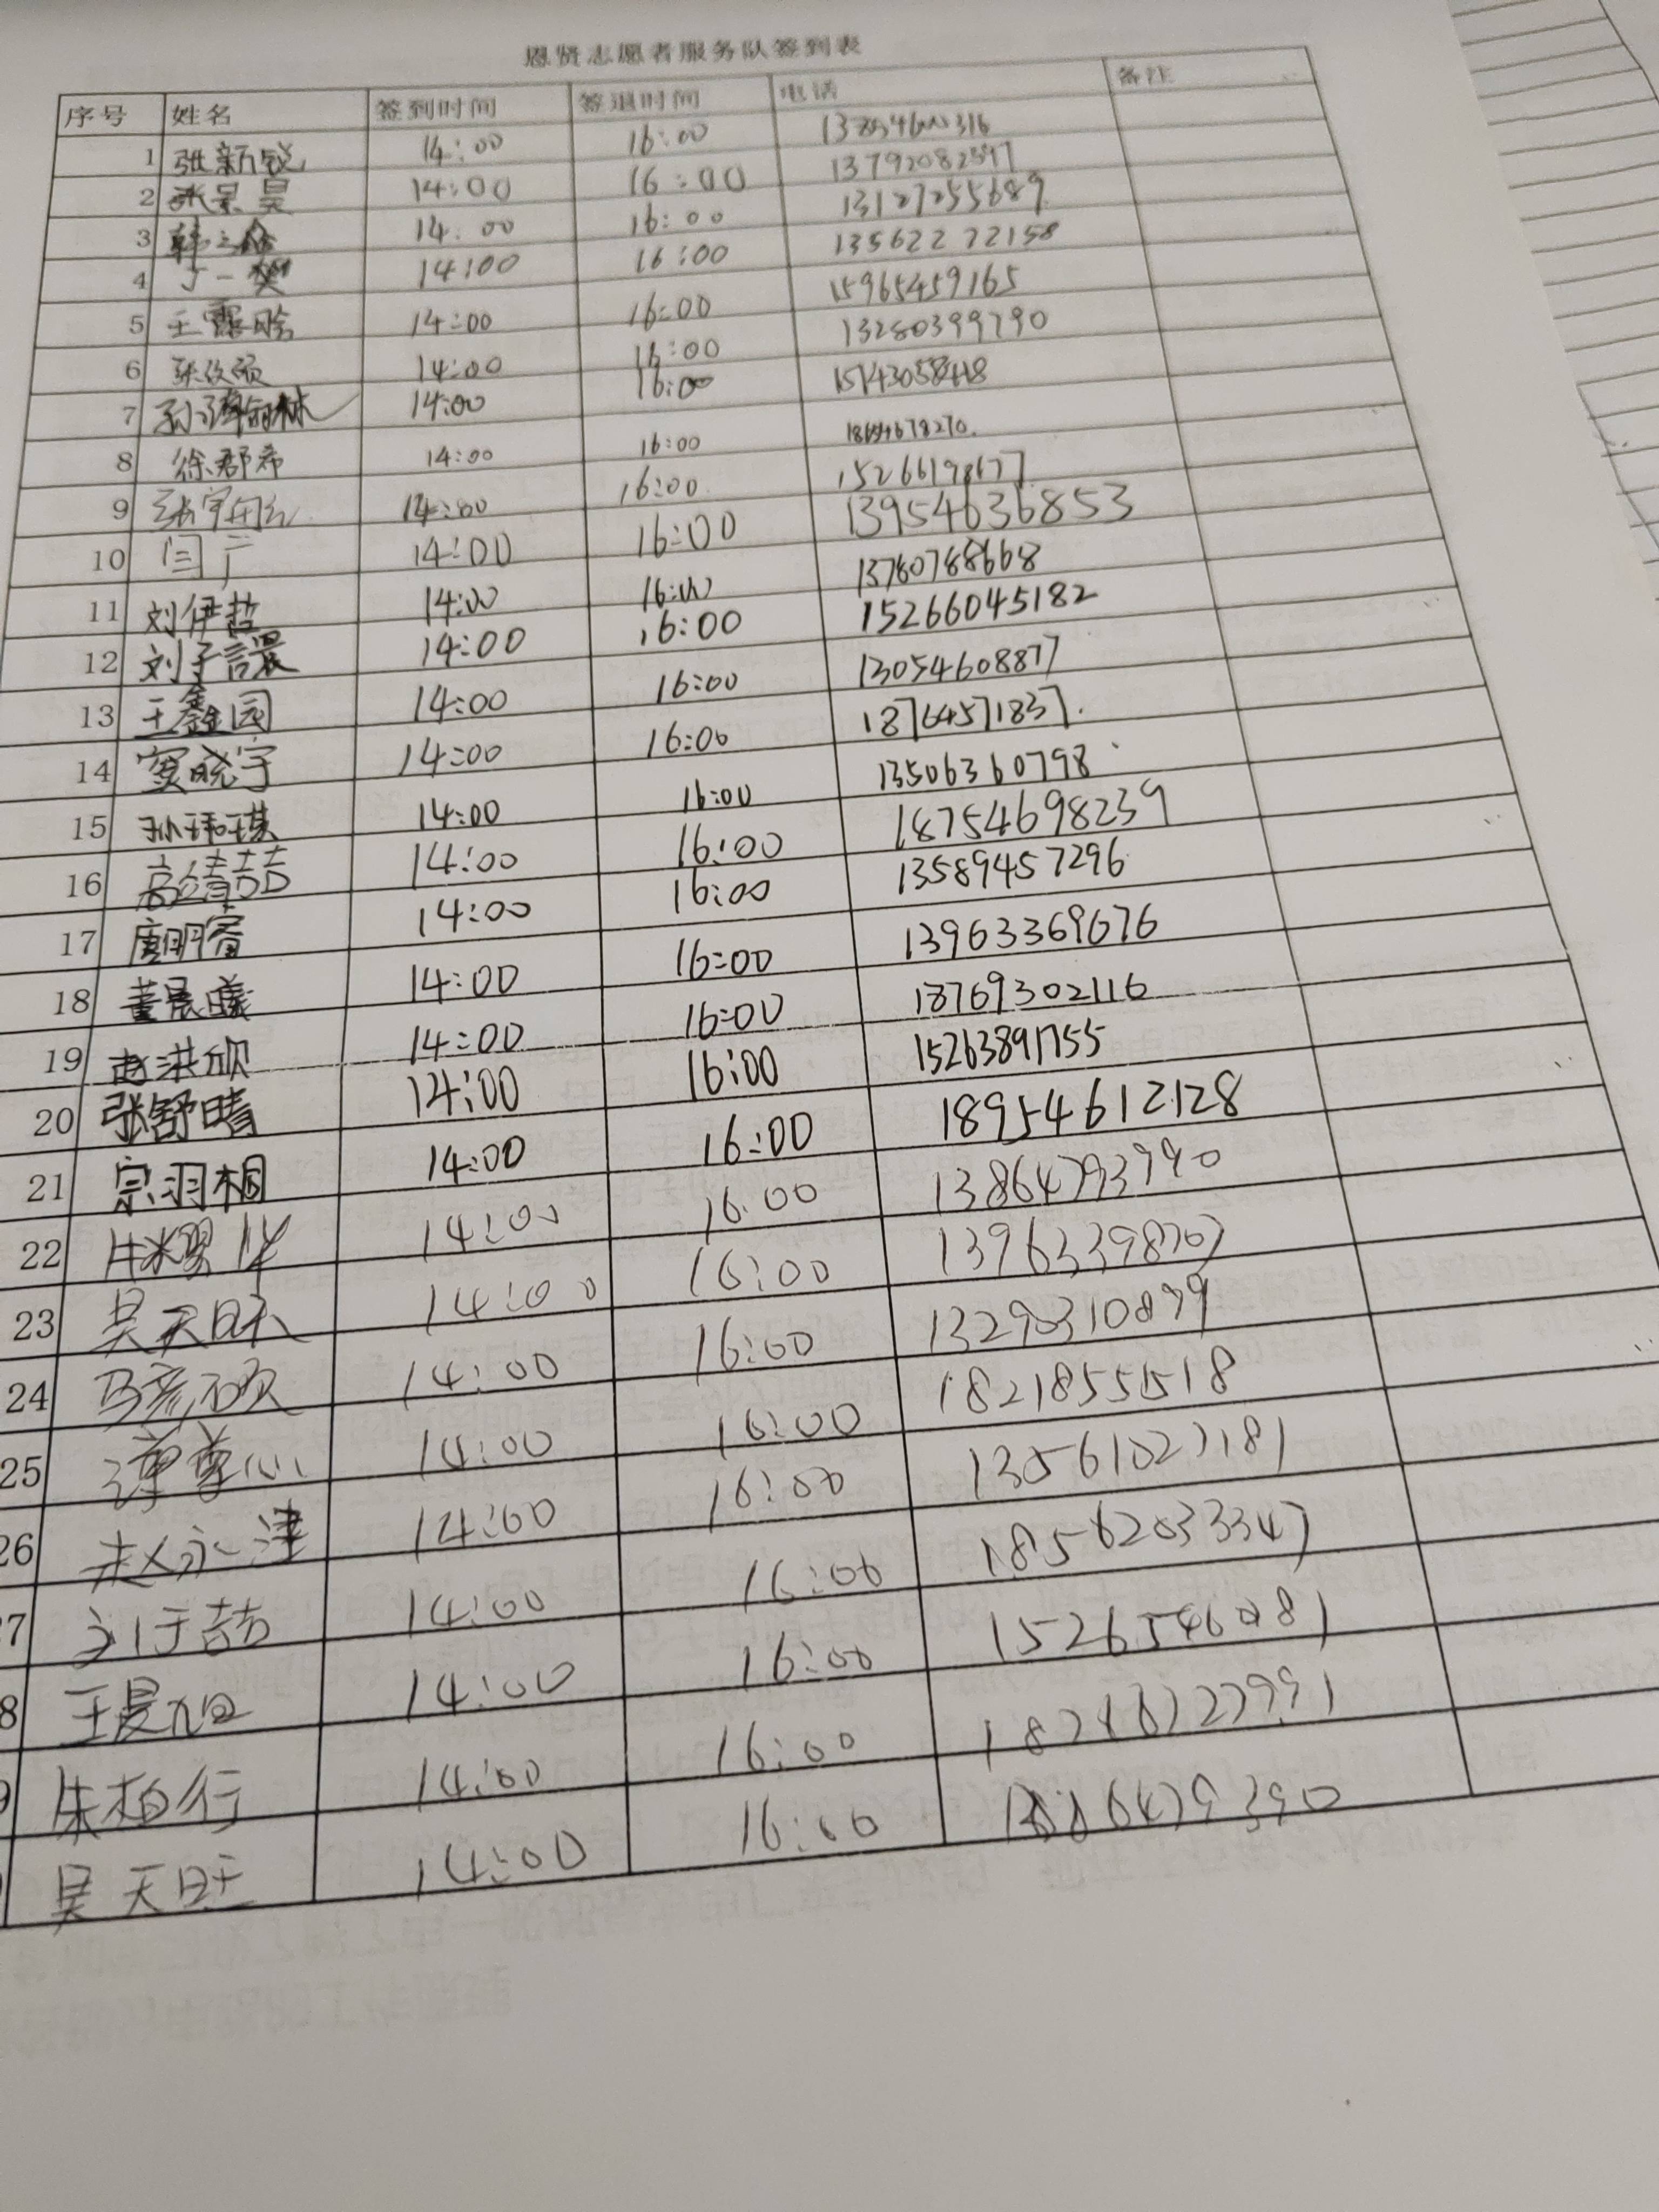 恩贤志愿者服务队签到表
序号 姓名 签到时间 签退时间 电话 备注
1 张新锐 14:00 16:00
2 张景昊 14:00 16:00 13792082597
3 韩 14:00 16:00 13127255689
4 丁一 14:00 16:00 13562272158
5 王露晗 14:00 16:00 15965459165
6 张 14:00 16:00 13280399790
7 孙 林 14:00 16:00
8 徐郡希 14:00 16:00
9 张 14:00 16:00 15266198677
10 闫 14:00 16:00 13954636853
11 刘伊哲 14:00 16:00 13780788668
12 刘子 14:00 16:00 15266045182
13 王鑫园 14:00 16:00 13054608877
14 窦晓宇 14:00 16:00 18764571837
15 孙玮琪 14:00 16:00 13506360798
16 高绮喆 14:00 16:00 18754698239
17 唐明睿 14:00 16:00 13589457296
18 董晨曦 14:00 16:00 13963369676
19 赵洪欣 14:00 16:00 18769302116
20 张舒晴 14:00 16:00 15263891755
21 宗羽桐 14:00 16:00 18954612128
22 14:00 16:00 13864793990
23 吴天 14:00 16:00 13963398707
24 马彦硕 14:00 16:00
25 谭尊心 14:00 16:00
26 赵永津 14:00 16:00 13561027181
7 刘于喆 14:00 16:00 18562033347
8 王晨旭 14:00 16:00
9 朱柏行 14:00 16:00
吴天旺 14:00 16:00